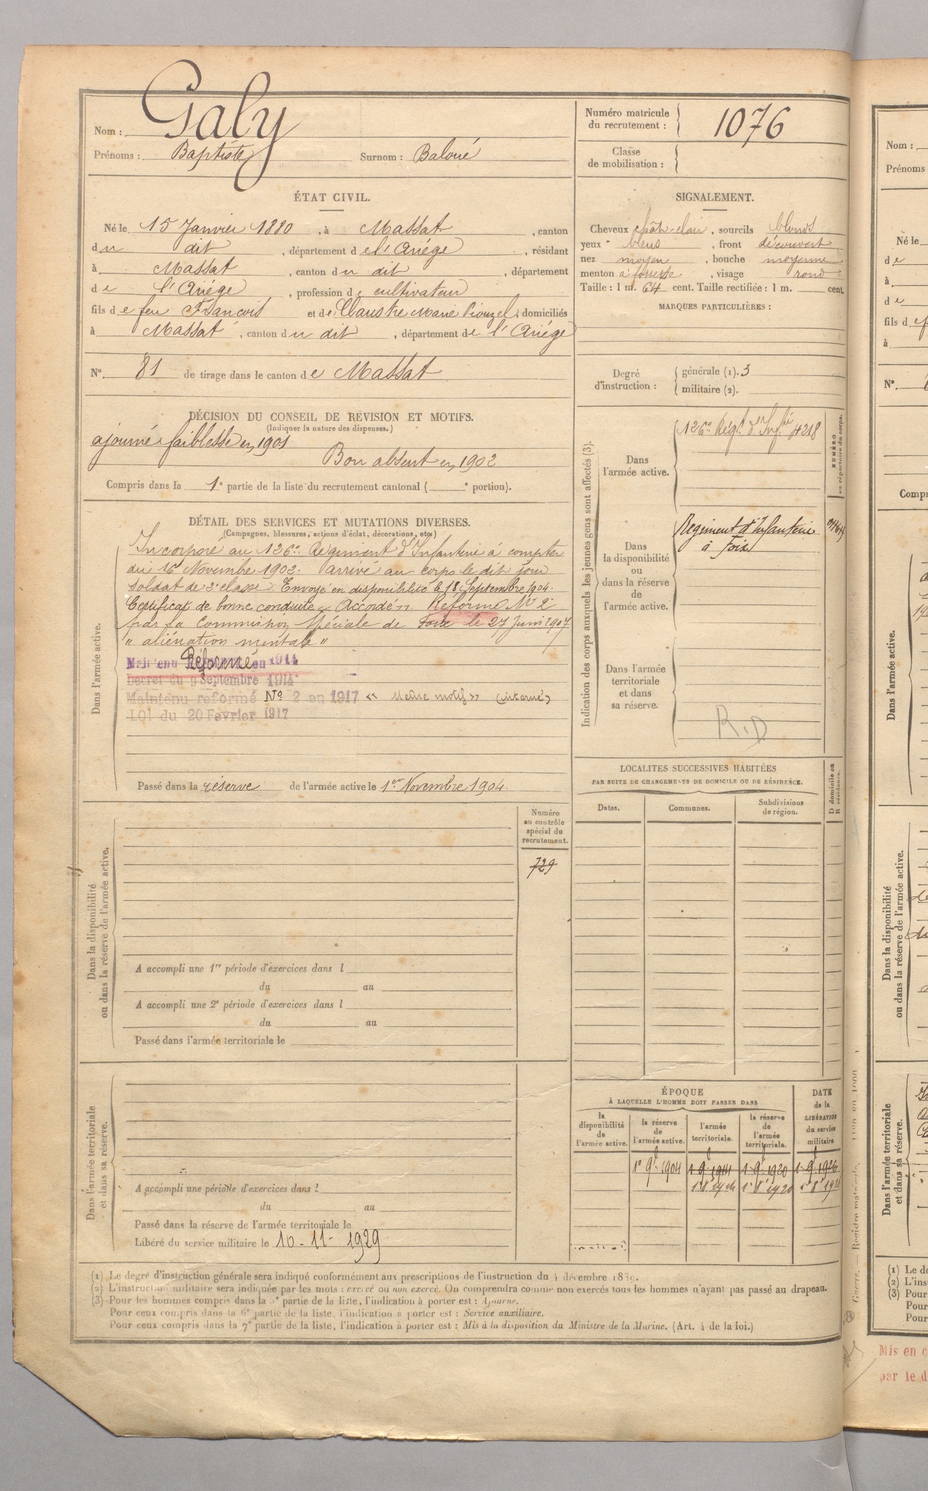 Nom : Galy
Prénoms : Baptiste Surnom : Baloué
Numéro matricule du recrutement : 1076
Classe de mobilisation :
ÉTAT CIVIL.
Né le 15 Janvier 1880, à Massat, canton
du dit, département de l'Ariége, résidant
à Massat, canton du dit, département
de l'Ariége, profession de cultivateur
fils de feu François et de Claustre Marie domiciliés
à Massat, canton du dit, département de l'Ariége
N° 81 de tirage dans le canton de Massat
SIGNALEMENT.
Cheveux chât. clair, sourcils blonds
yeux bleus, front découvert
nez moyen, bouche moyenne
menton à fossette, visage rond
Taille : 1 m. 64 cent. Taille rectifiée : 1 m. cent.
MARQUES PARTICULIÈRES :
Degré d'instruction : générale (1). 3
militaire (2).
DÉCISION DU CONSEIL DE RÉVISION ET MOTIFS.
(Indiquer la nature des dispenses.)
ajourné faiblesse en 1901
Bon absent en 1902
Compris dans la 1e partie de la liste du recrutement cantonal ( e portion).
DÉTAIL DES SERVICES ET MUTATIONS DIVERSES.
(Campagnes, blessures, actions d'éclat, décorations, etc.)
Dans l'armée active.
Incorporé au 126e Régiment d'Infanterie à compter
du 16 Novembre 1903. arrivé au corps le dit jour
soldat de 2e classe. Envoyé en disponibilité le 18 Septembre 1904.
Certificat de bonne conduite « Accordé ». Réformé N° 2
par la Commission Spéciale de Foix le 27 Juin 1907
" aliénation mentale "
Maintenu Réformé en 1914
Décret du 9 Septembre 1914
Maintenu réformé N° 2 en 1917 « même motif » (interné)
LOI du 20 Février 1917
Passé dans la réserve de l'armée active le 1er Novembre 1904.
Indication des corps auxquels les jeunes gens sont affectés (3).
Dans l'armée active.
126e Régt. d'Infie 4218
NUMÉRO au répertoire du corps.
Dans la disponibilité ou dans la réserve de l'armée active.
Régiment d'Infanterie
à Foix
Dans l'armée territoriale et dans sa réserve.
R.D
LOCALITÉS SUCCESSIVES HABITÉES
PAR SUITE DE CHANGEMENTS DE DOMICILE OU DE RÉSIDENCE.
Dates. Communes. Subdivisions de région. D domicile ou R résidence.
Dans la disponibilité ou dans la réserve de l'armée active.
Numéro au contrôle spécial du recrutement.
729
A accompli une 1re période d'exercices dans l
du au
A accompli une 2e période d'exercices dans l
du au
Passé dans l'armée territoriale le
Dans l'armée territoriale et dans sa réserve.
A accompli une période d'exercices dans l
du au
Passé dans la réserve de l'armée territoriale le
Libéré du service militaire le 10-11-1929
ÉPOQUE
À LAQUELLE L'HOMME DOIT PASSER DANS
la disponibilité de l'armée active.
la réserve de l'armée active.
l'armée territoriale.
la réserve de l'armée territoriale.
DATE de la LIBÉRATION du service militaire.
1er 9e 1904 1 9e 1914 1 9e 1920 1 9e 1926
(1) Le degré d'instruction générale sera indiqué conformément aux prescriptions de l'instruction du 4 décembre 1889.
(2) L'instruction militaire sera indiquée par les mots : exercé ou non exercé. On comprendra comme non exercés tous les hommes n'ayant pas passé au drapeau.
(3) Pour les hommes compris dans la 5e partie de la liste, l'indication à porter est : Ajourné.
Pour ceux compris dans la 6e partie de la liste, l'indication à porter est : Service auxiliaire.
Pour ceux compris dans la 7e partie de la liste, l'indication à porter est : Mis à la disposition du Ministre de la Marine. (Art. 4 de la loi.)
Nom :
Prénoms
Né le
de
à
de
fils d
à
N°
Compris
Dans l'armée active.
Dans la disponibilité ou dans la réserve de l'armée active.
Dans l'armée territoriale et dans sa réserve.
(1) Le de
(2) L'inst
(3) Pour
Pour
Pour
Mis en
par le d